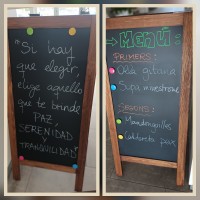 "Si hay
que elegir,
elige aquello
que te brinde
PAZ,
SERENIDAD
Y
TRANQUILIDAD"
MENÚ
PRIMERS:
Olla gitana
Sopa minestrone
SEGONS:
Mandonguilles